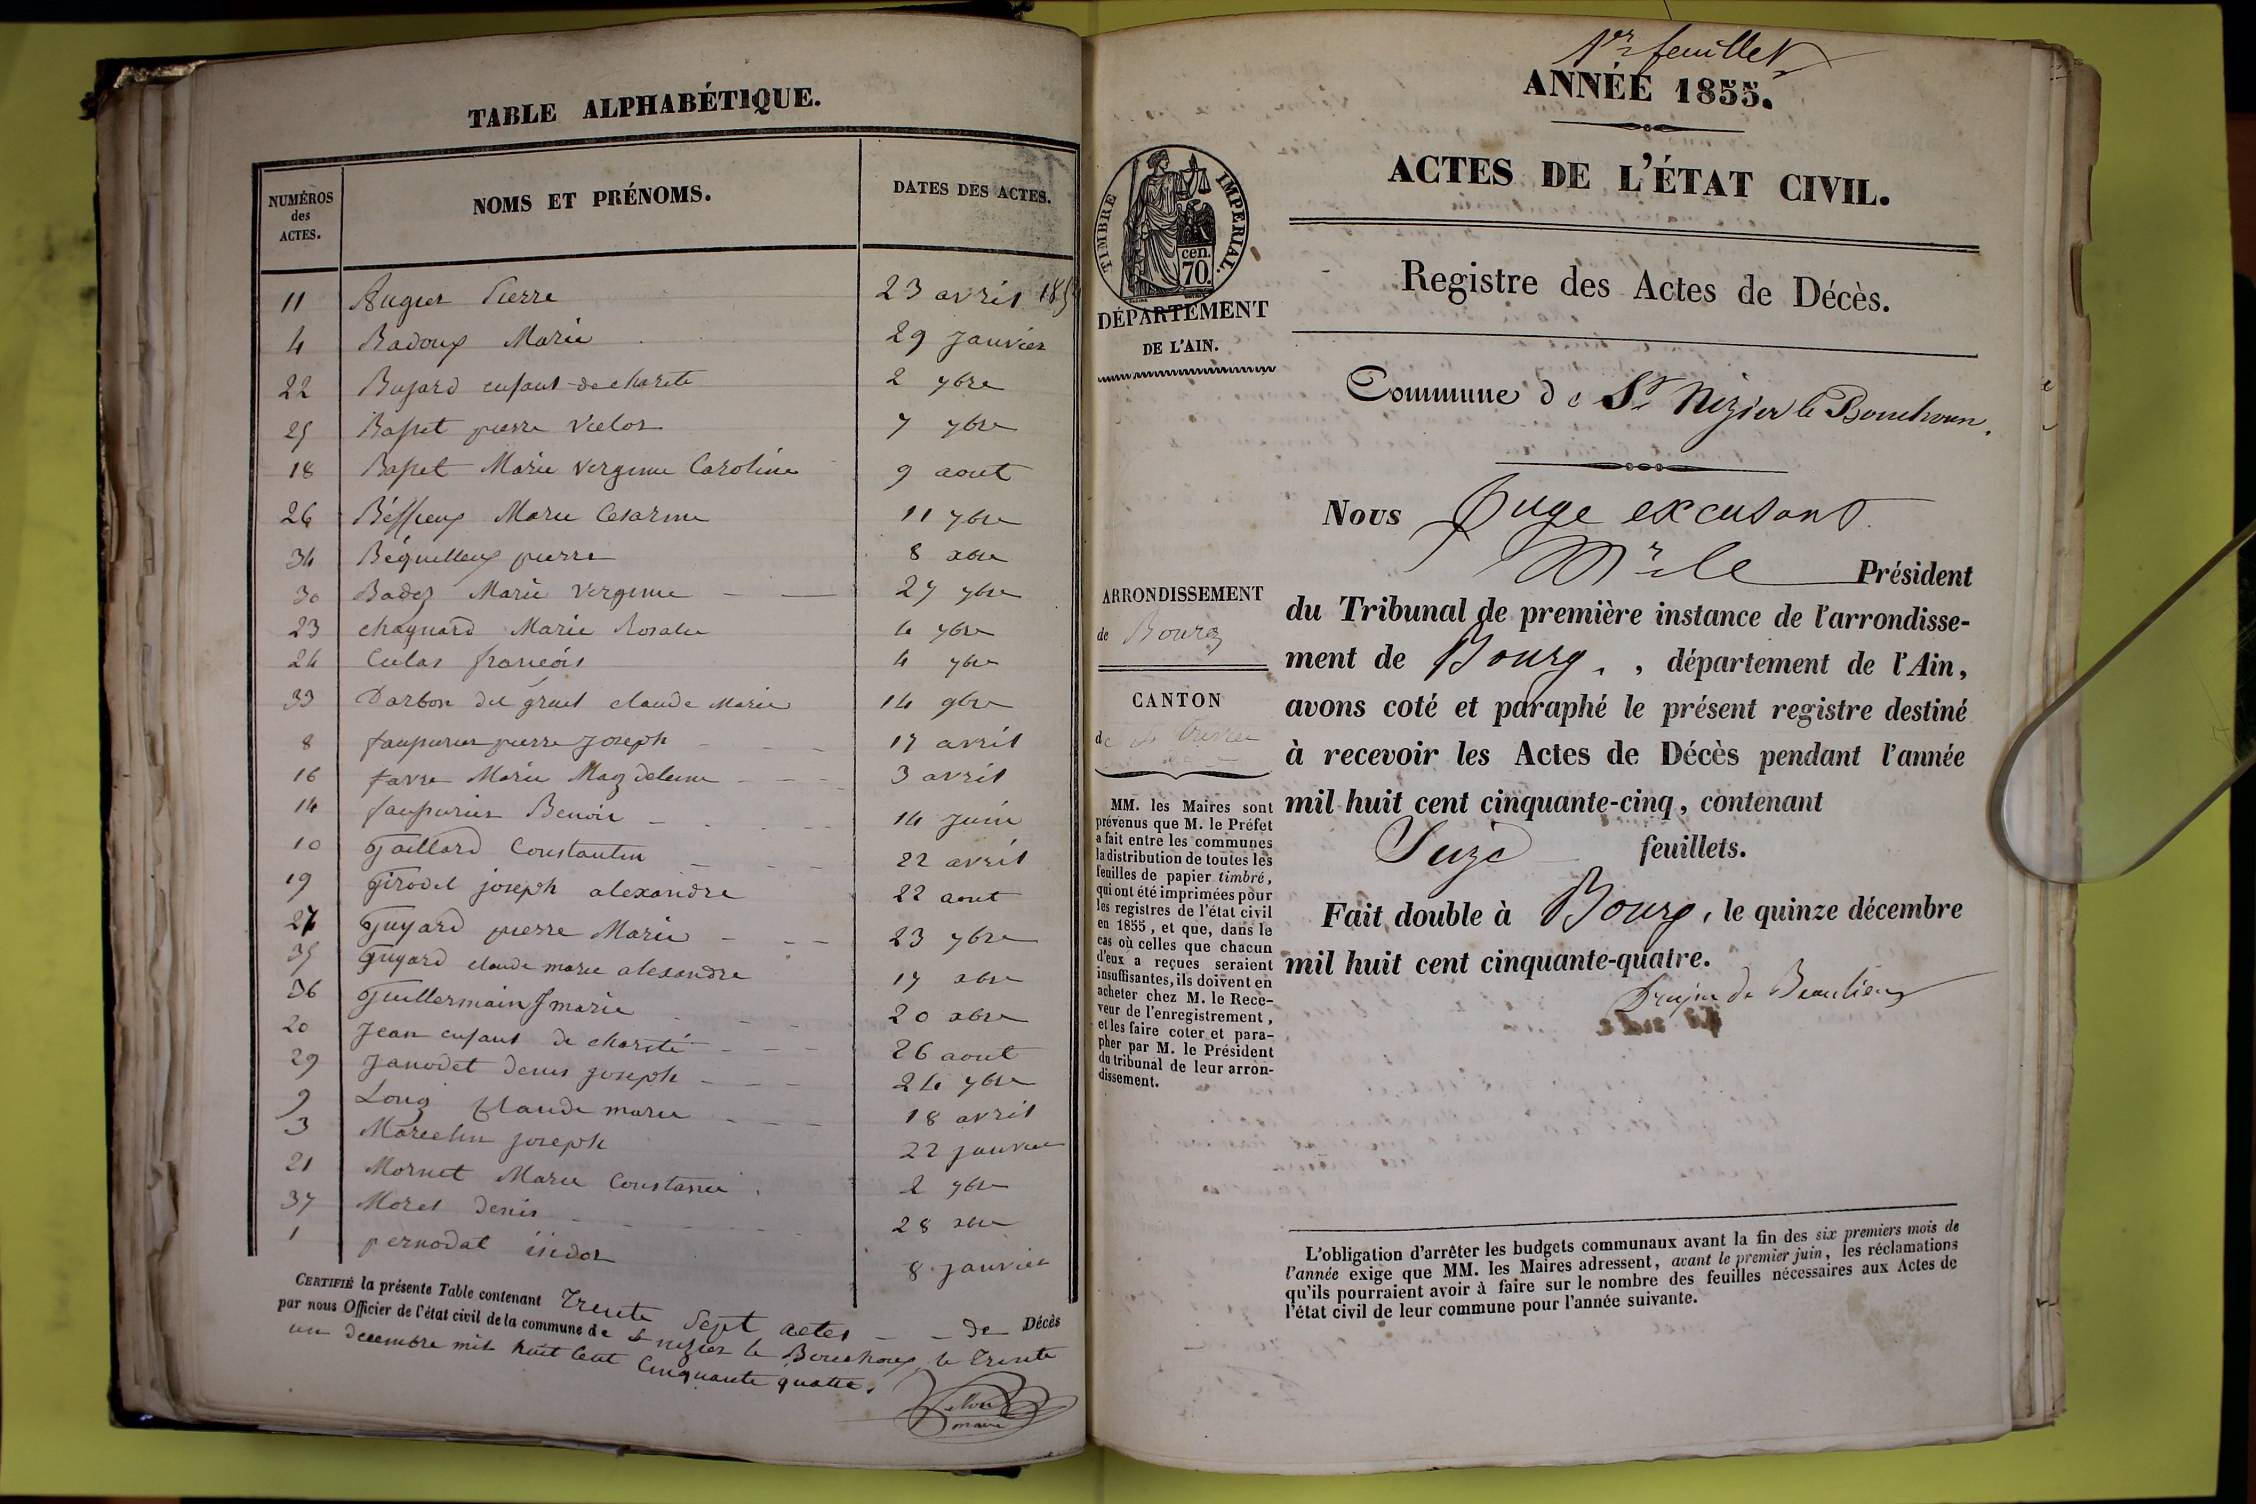 TABLE ALPHABÉTIQUE.
NUMÉROS des ACTES. NOMS ET PRÉNOMS. DATES DES ACTES.
11 Augier Pierre 23 avril 185
4 Badoux Marie 29 Janvier
22 Bujard enfant de charité 2 7bre
25 Basset pierre Victor 7 7bre
18 Basset Marie Verginie Caroline 9 aout
26 Béssieux Marie Cesarine 11 7bre
34 Béquilleux pierre 8 xbre
30 Badez Marie Verginie 27 7bre
23 chagnard Marie Rosalie 4 7bre
24 Culas françois 4 7bre
33 Darbon dit gruit claude Marie 14 9bre
8 faupurier pierre Joseph 17 avril
16 favre Marie Magdeleine 3 avril
14 faupurier Benoit 14 Juin
10 Gaillard Constantin 22 avril
19 Girodet joseph alexandre 22 aout
27 Guyard pierre Marie 23 7bre
35 Guyard claude marie alexandre 17 xbre
36 Guillermain f marie 20 xbre
20 Jean enfant de charité 26 aout
29 Janodet denis joseph 24 7bre
9 Long Claude marie 18 avril
3 Marcelin joseph 22 janvier
21 Mornet Marie Constance 2 7bre
37 Morel denis 28 xbre
1 pernodat isidor 8 janvier
CERTIFIÉ la présente Table contenant Trente Sept actes de Décès
par nous Officier de l'état civil de la commune de St nizier le Bouchoux le Trente
un decembre mil huit Cent Cinquante quatre.
maire
1er feuillet
ANNÉE 1855.
ACTES DE L'ÉTAT CIVIL.
TIMBRE IMPERIAL.
cen.
70
DÉPARTEMENT
DE L'AIN.
Registre des Actes de Décès.
Commune de St Nizier le Bouchoux.
Nous Juge excusant
Mr le Président
du Tribunal de première instance de l'arrondisse-
ment de Bourg, département de l'Ain,
avons coté et paraphé le présent registre destiné
à recevoir les Actes de Décès pendant l'année
mil huit cent cinquante-cinq, contenant
Seize feuillets.
Fait double à Bourg, le quinze décembre
mil huit cent cinquante-quatre.
de Beaulieu
ARRONDISSEMENT
de Bourg
CANTON
de St Trivier
MM. les Maires sont
prévenus que M. le Préfet
a fait entre les communes
la distribution de toutes les
feuilles de papier timbré,
qui ont été imprimées pour
les registres de l'état civil
en 1855, et que, dans le
cas où celles que chacun
d'eux a reçues seraient
insuffisantes, ils doivent en
acheter chez M. le Rece-
veur de l'enregistrement,
et les faire coter et para-
pher par M. le Président
du tribunal de leur arron-
dissement.
L'obligation d'arrêter les budgets communaux avant la fin des six premiers mois de
l'année exige que MM. les Maires adressent, avant le premier juin, les réclamations
qu'ils pourraient avoir à faire sur le nombre des feuilles nécessaires aux Actes de
l'état civil de leur commune pour l'année suivante.